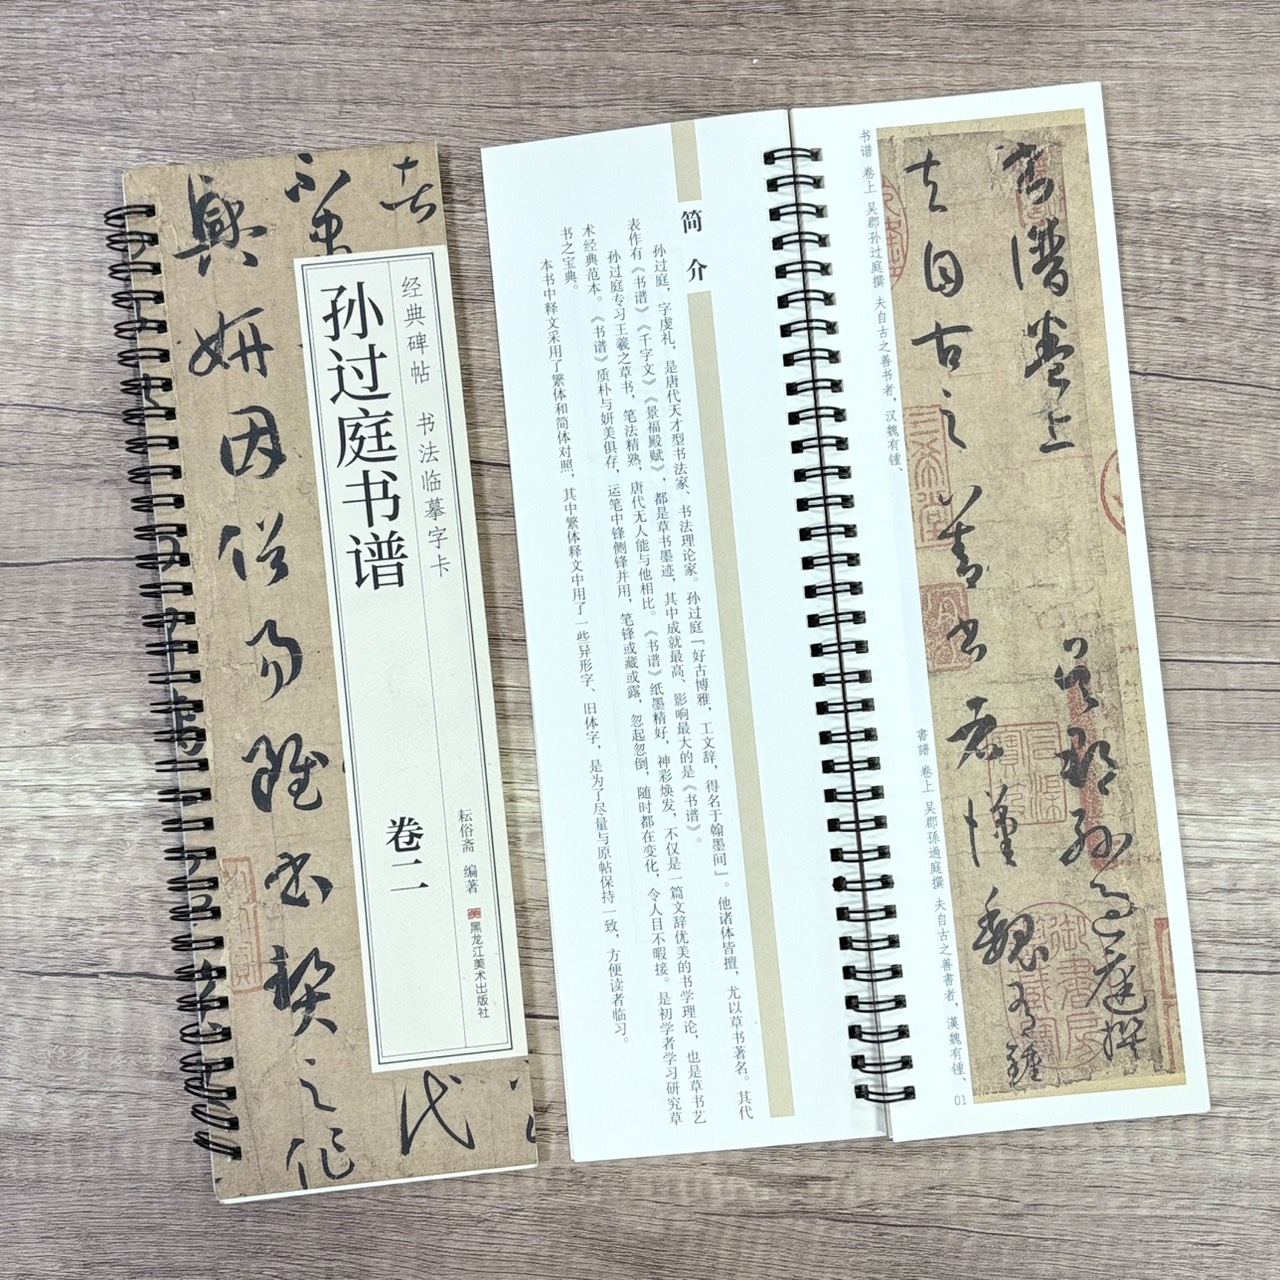 经典碑帖 书法临摹字卡
孙过庭书谱
卷二
耘俗斋 编著
黑龙江美术出版社
与
妍因俗易虽书契之作
代
简介
孙过庭，字虔礼，是唐代天才型书法家、书法理论家。孙过庭『好古博雅，工文辞，得名于翰墨间』。他诸体皆擅，尤以草书著名。其代
表作有《书谱》《千字文》《景福殿赋》，都是草书墨迹，其中成就最高、影响最大的是《书谱》。
孙过庭专习王羲之草书，笔法精熟，唐代无人能与他相比。《书谱》纸墨精好，神彩焕发，不仅是一篇文辞优美的书学理论，也是草书艺
术经典范本。《书谱》质朴与妍美俱存，运笔中锋侧锋并用，笔锋或藏或露，忽起忽倒，随时都在变化，令人目不暇接。是初学者学习研究草
书之宝典。
本书中释文采用了繁体和简体对照，其中繁体释文中用了一些异形字、旧体字，是为了尽量与原帖保持一致，方便读者临习。
書譜卷上 吴郡孙过庭撰
夫自古之善书者汉魏有锺
书谱 卷上 吴郡孙过庭撰 夫自古之善书者，汉魏有锺、
書譜 卷上 吴郡孫過庭撰 夫自古之善書者，漢魏有锺、
01